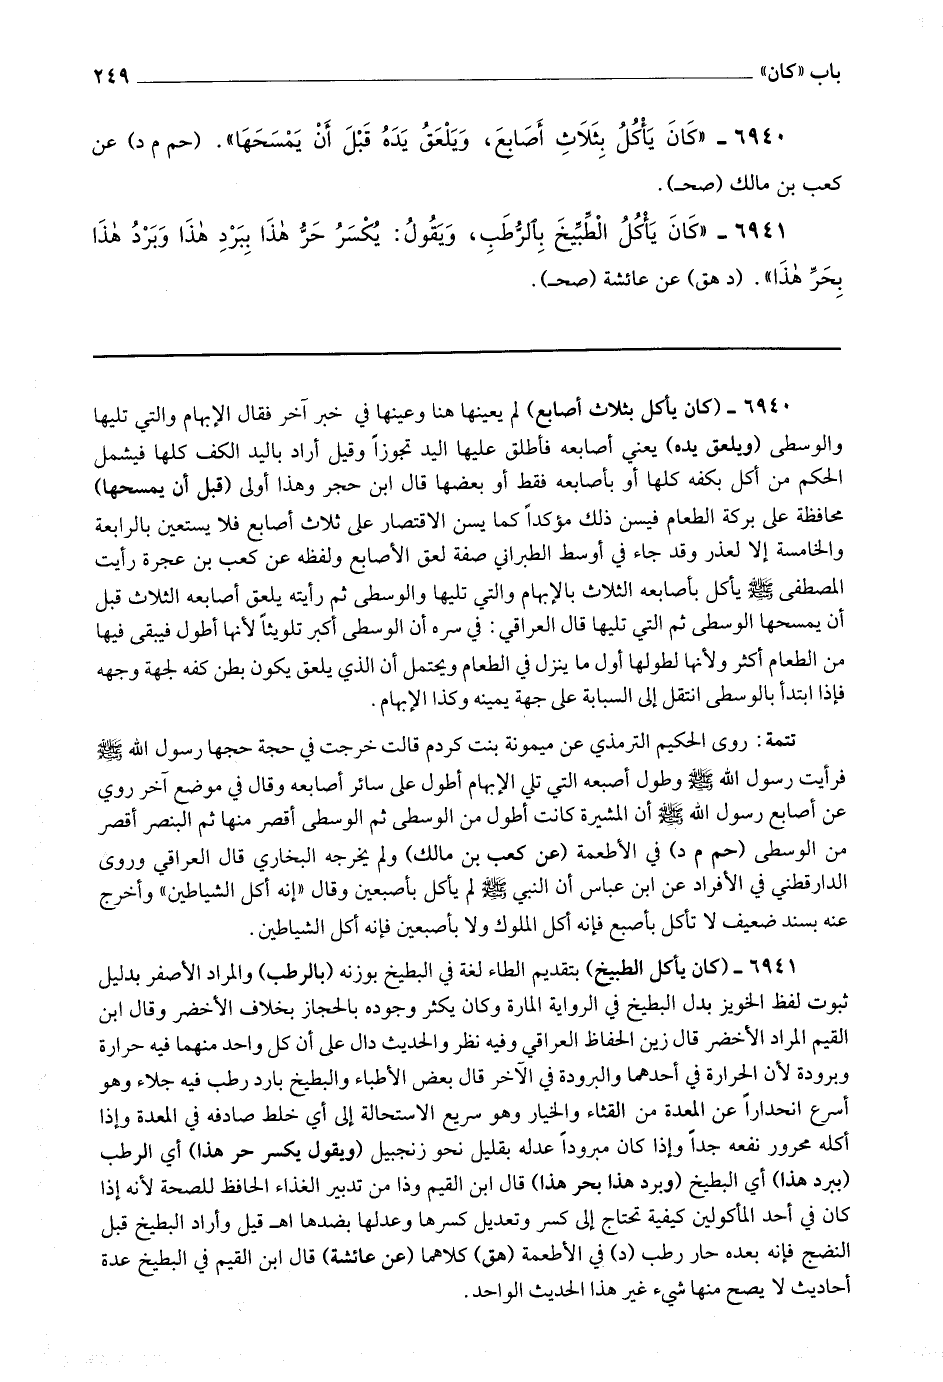 باب «كان» ٢٤٩
٦٩٤٠ ـ «كَانَ يَأْكُلُ بِثَلَاثِ أَصَابِعَ، وَيَلْعَقُ يَدَهُ قَبْلَ أَنْ يَمْسَحَهَا». (حم م د) عن
كعب بن مالك (صحـ).
٦٩٤١ ـ «كَانَ يَأْكُلُ الْطِّبِّيخَ بِٱلرُّطَبِ، وَيَقُولُ: يُكْسَرُ حَرُّ هٰذَا بِبَرْدِ هٰذَا وَبَرْدُ هٰذَا
بِحَرِّ هٰذَا». (د هق) عن عائشة (صحـ).
٦٩٤٠ ـ (كان يأكل بثلاث أصابع) لم يعينها هنا وعينها في خبر آخر فقال الإبهام والتي تليها
والوسطى (ويلعق يده) يعني أصابعه فأطلق عليها اليد تجوزاً وقيل أراد باليد الكف كلها فيشمل
الحكم من أكل بكفه كلها أو بأصابعه فقط أو بعضها قال ابن حجر وهذا أولى (قبل أن يمسحها)
محافظة على بركة الطعام فيسن ذلك مؤكداً كما يسن الاقتصار على ثلاث أصابع فلا يستعين بالرابعة
والخامسة إلا لعذر وقد جاء في أوسط الطبراني صفة لعق الأصابع ولفظه عن كعب بن عجرة رأيت
المصطفى ﷺ يأكل بأصابعه الثلاث بالإبهام والتي تليها والوسطى ثم رأيته يلعق أصابعه الثلاث قبل
أن يمسحها الوسطى ثم التي تليها قال العراقي: في سره أن الوسطى أكبر تلويثاً لأنها أطول فيبقى فيها
من الطعام أكثر ولأنها لطولها أول ما ينزل في الطعام ويحتمل أن الذي يلعق يكون بطن كفه لجهة وجهه
فإذا ابتدأ بالوسطى انتقل إلى السبابة على جهة يمينه وكذا الإبهام.
تتمة: روى الحكيم الترمذي عن ميمونة بنت كردم قالت خرجت في حجة حجها رسول الله ﷺ
فرأيت رسول الله ﷺ وطول أصبعه التي تلي الإبهام أطول على سائر أصابعه وقال في موضع آخر روي
عن أصابع رسول الله ﷺ أن المشيرة كانت أطول من الوسطى ثم الوسطى أقصر منها ثم البنصر أقصر
من الوسطى (حم م د) في الأطعمة (عن كعب بن مالك) ولم يخرجه البخاري قال العراقي وروى
الدارقطني في الأفراد عن ابن عباس أن النبي ﷺ لم يأكل بأصبعين وقال «إنه أكل الشياطين» وأخرج
عنه بسند ضعيف لا تأكل بأصبع فإنه أكل الملوك ولا بأصبعين فإنه أكل الشياطين.
٦٩٤١ ـ (كان يأكل الطبيخ) بتقديم الطاء لغة في البطيخ بوزنه (بالرطب) والمراد الأصفر بدليل
ثبوت لفظ الخويز بدل البطيخ في الرواية المارة وكان يكثر وجوده بالحجاز بخلاف الأخضر وقال ابن
القيم المراد الأخضر قال زين الحفاظ العراقي وفيه نظر والحديث دال على أن كل واحد منهما فيه حرارة
وبرودة لأن الحرارة في أحدهما والبرودة في الآخر قال بعض الأطباء والبطيخ بارد رطب فيه جلاء وهو
أسرع انحداراً عن المعدة من القثاء والخيار وهو سريع الاستحالة إلى أي خلط صادفه في المعدة وإذا
أكله محرور نفعه جداً وإذا كان مبروداً عدله بقليل نحو زنجبيل (ويقول يكسر حر هذا) أي الرطب
(ببرد هذا) أي البطيخ (وبرد هذا بحر هذا) قال ابن القيم وذا من تدبير الغذاء الحافظ للصحة لأنه إذا
كان في أحد المأكولين كيفية تحتاج إلى كسر وتعديل كسرها وعدلها بضدها اهـ قيل وأراد البطيخ قبل
النضج فإنه بعده حار رطب (د) في الأطعمة (هق) كلاهما (عن عائشة) قال ابن القيم في البطيخ عدة
أحاديث لا يصح منها شيء غير هذا الحديث الواحد.